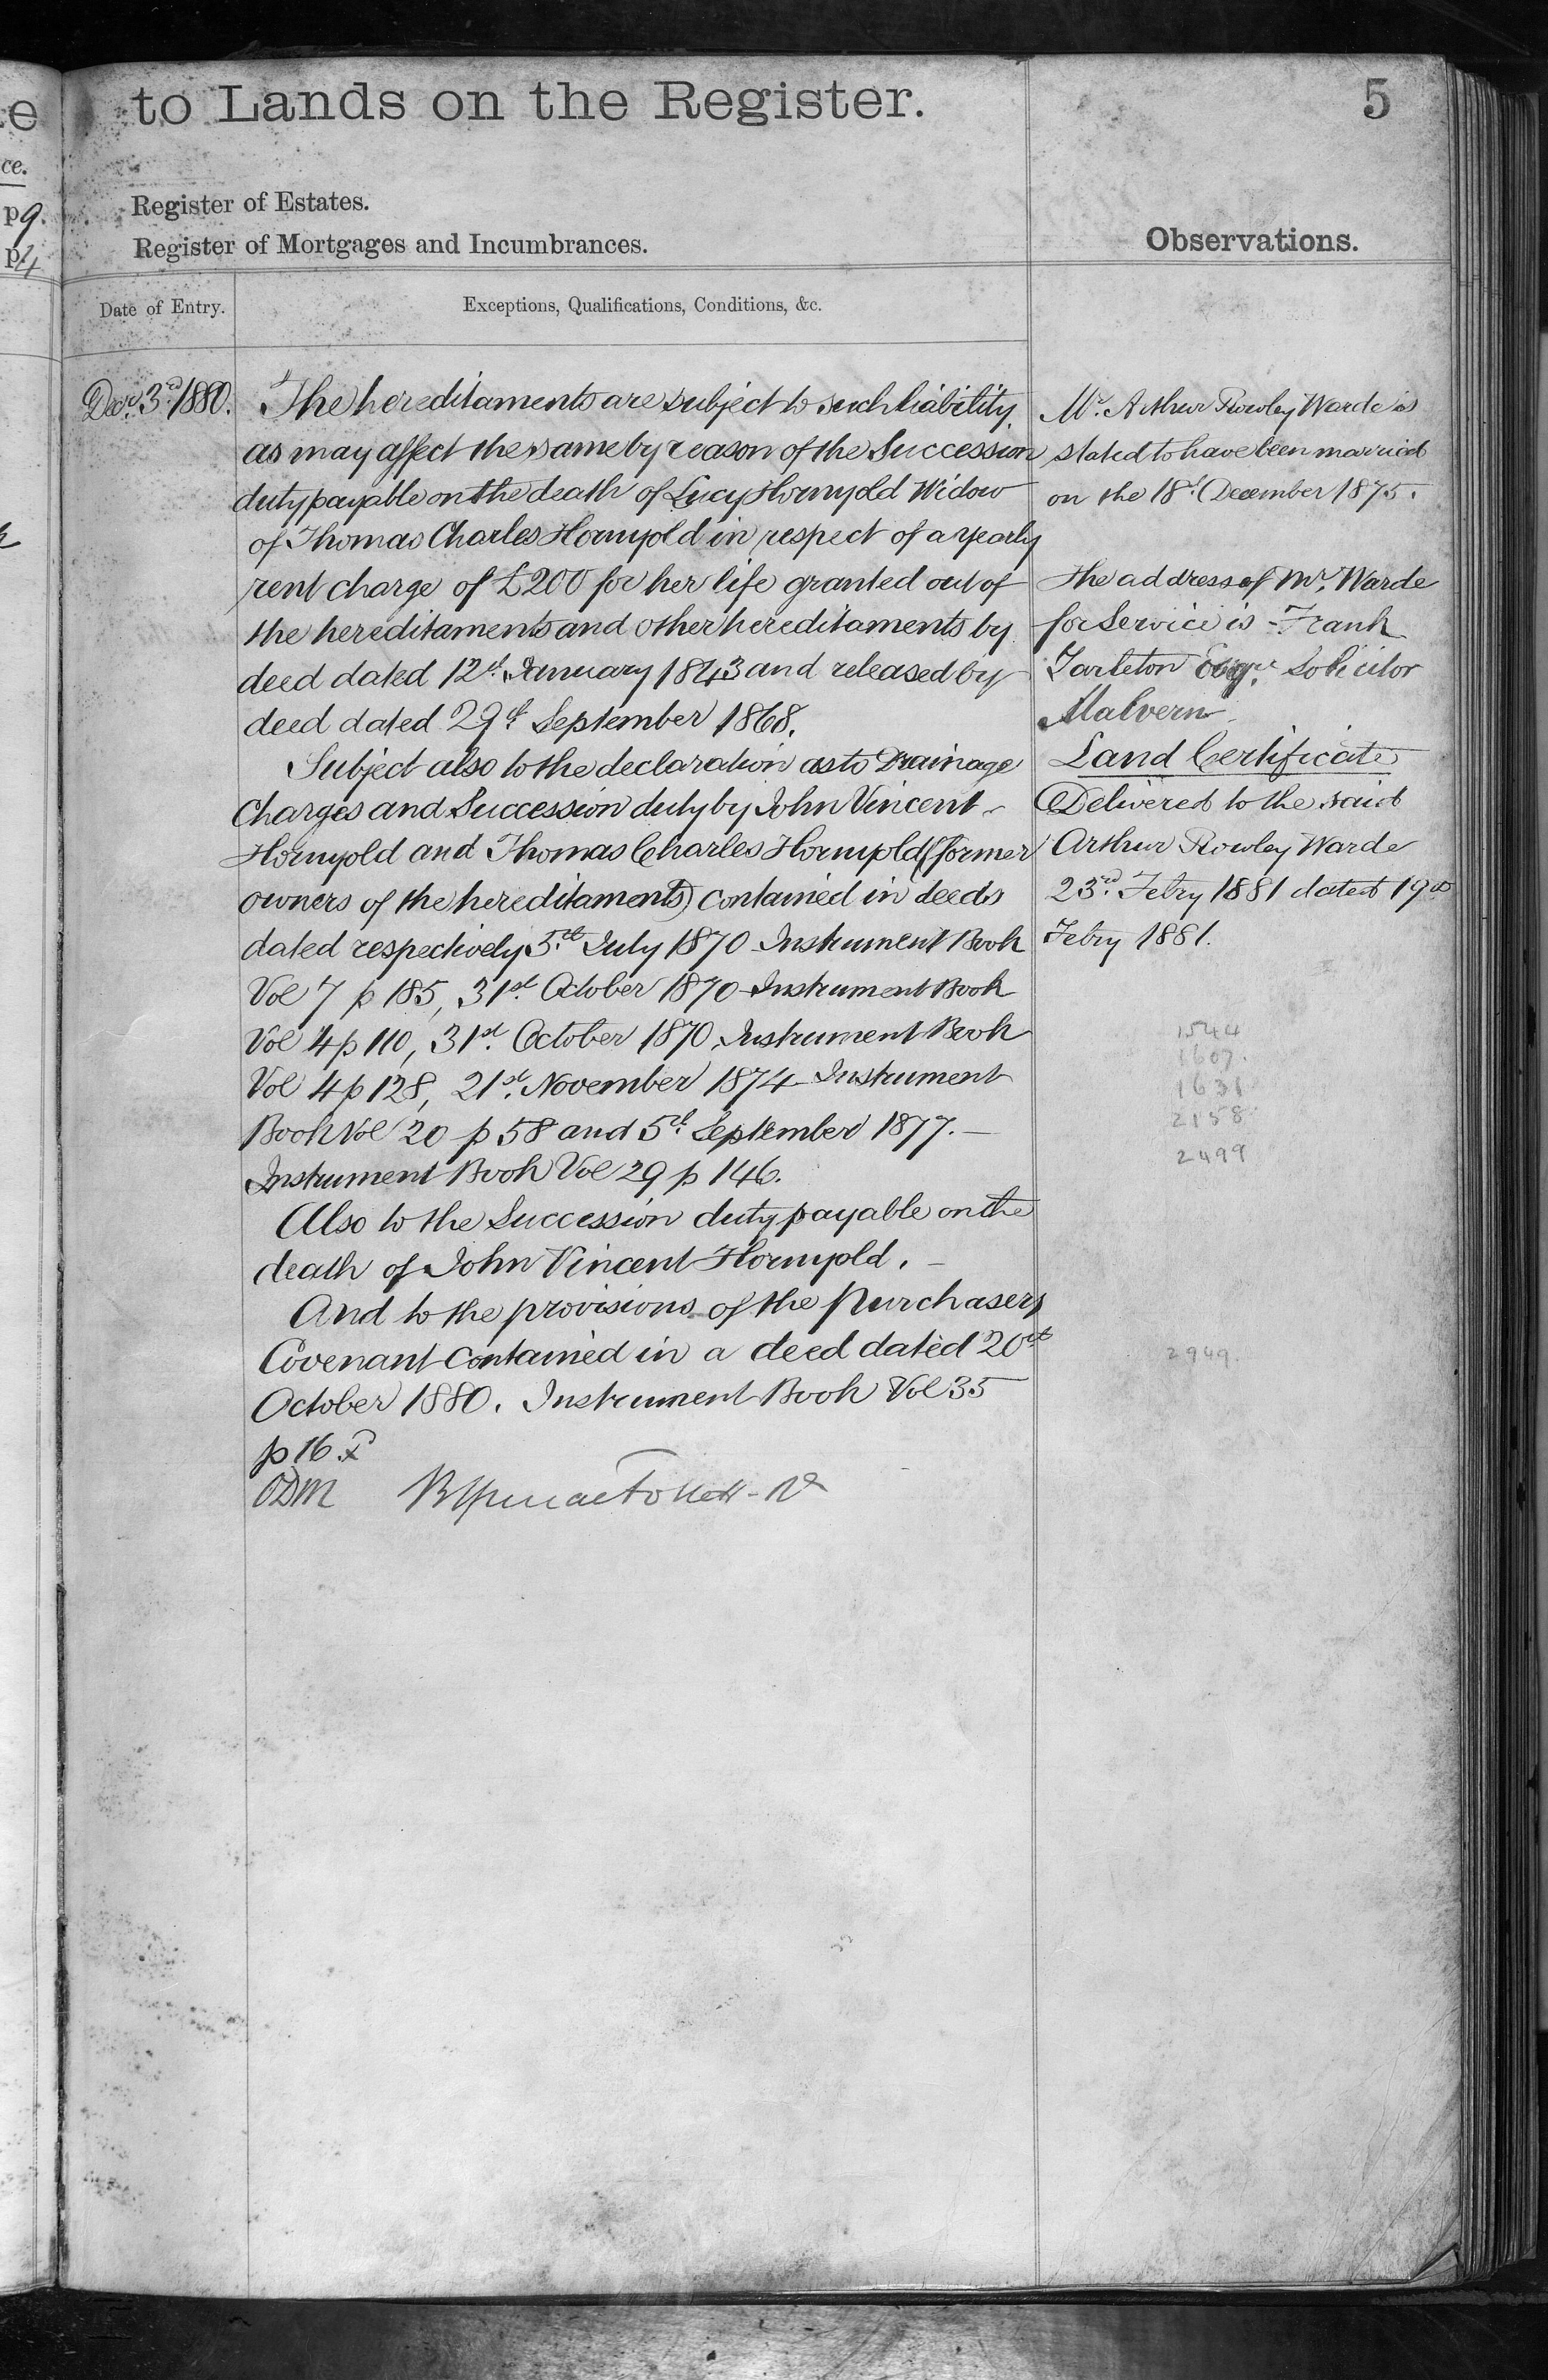 to Lands on the Register.
5
e
ce.
p 9.
p 4
Register of Estates.
Register of Mortgages and Incumbrances.
Observations.
Date of Entry.
Exceptions, Qualifications, Conditions, &c.
Decr. 3rd 1880.
The hereditaments are subject to such liability
as may affect the same by reason of the Succession
duty payable on the death of Lucy Hornyold Widow
of Thomas Charles Hornyold in respect of a yearly
rent charge of £200 for her life granted out of
the hereditaments and other hereditaments by
deed dated 12th January 1843 and released by
deed dated 29th September 1868.
Subject also to the declaration as to Drainage
Charges and Succession duty by John Vincent
Hornyold and Thomas Charles Hornyold (former
owners of the hereditaments) contained in deeds
dated respectively 5th July 1870 Instrument Book
Vol 7 p 185, 31st October 1870 Instrument Book
Vol 4 p 110, 31st October 1870, Instrument Book
Vol 4 p 128, 21st November 1874 Instrument
Book Vol 20 p 58 and 5th September 1877.
Instrument Book Vol 29 p 146.
Also to the Succession duty payable on the
death of John Vincent Hornyold.
And to the provisions of the Purchasers
Covenant contained in a deed dated 20th
October 1880. Instrument Book Vol 35
p 16.
ODM
Mr. Arthur Rowley Warde is
stated to have been married
on the 18th December 1875.
The address of Mr. Warde
for Service is Frank
Tarleton Esqr. Solicitor
Malvern.
Land Certificate
Delivered to the said
Arthur Rowley Warde
23rd Febry 1881 dated 19th
Febry 1881.
1544
1607.
1631
2158
2499
2949.